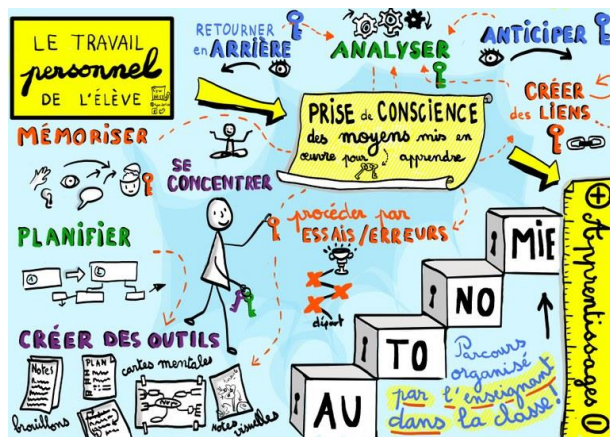 LE TRAVAIL
personnel
DE L'ÉLÈVE
RETOURNER
en ARRIÈRE
ANALYSER
ANTICIPER
CRÉER
des LIENS
PRISE de CONSCIENCE
des moyens mis en
œuvre pour apprendre
MÉMORISER
SE
CONCENTRER
PLANIFIER
procéder par
ESSAIS/ERREURS
départ
CRÉER DES OUTILS
Notes
PLAN
cartes mentales
brouillons
Notes
visuelles
AU
TO
NO
MIE
Parcours
organisé
par l'enseignant
dans la classe!
+ Apprentissages